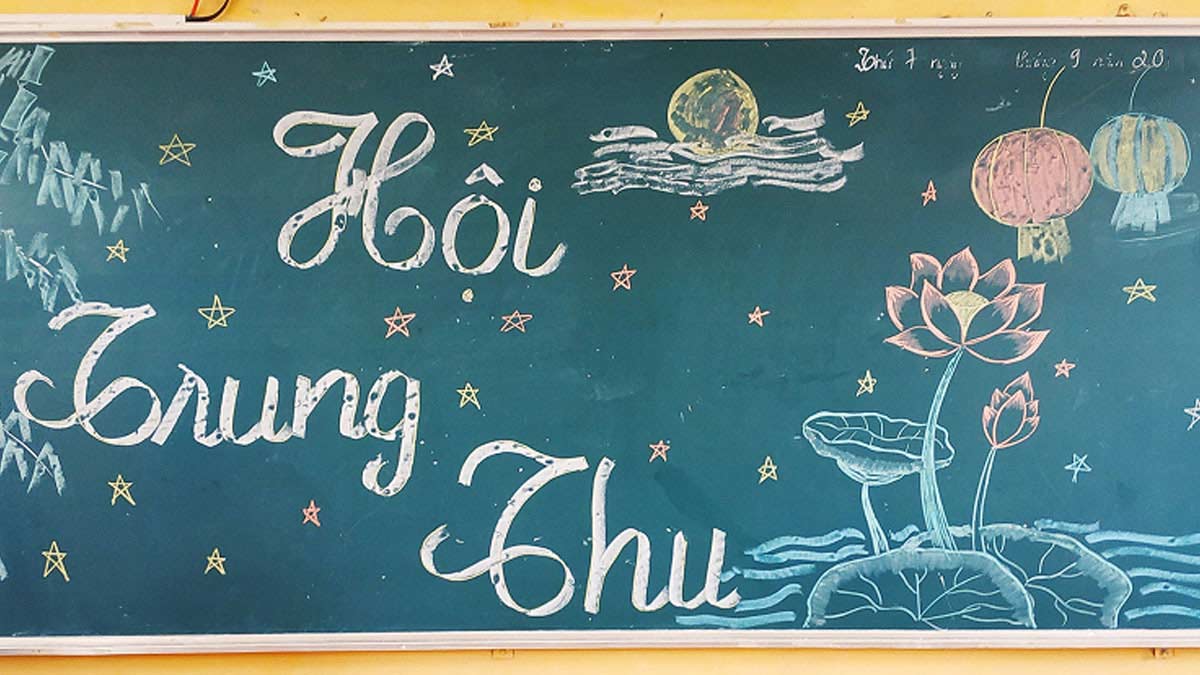 Thứ 7 ngày tháng 9 năm 20
Hội
Trung
Thu